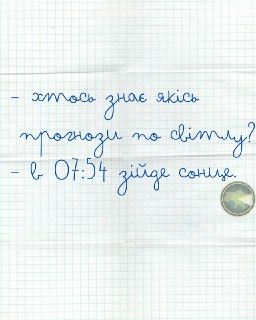 - хтось знає якісь
прогнози по світлу?
- в 07:54 зійде сонце.